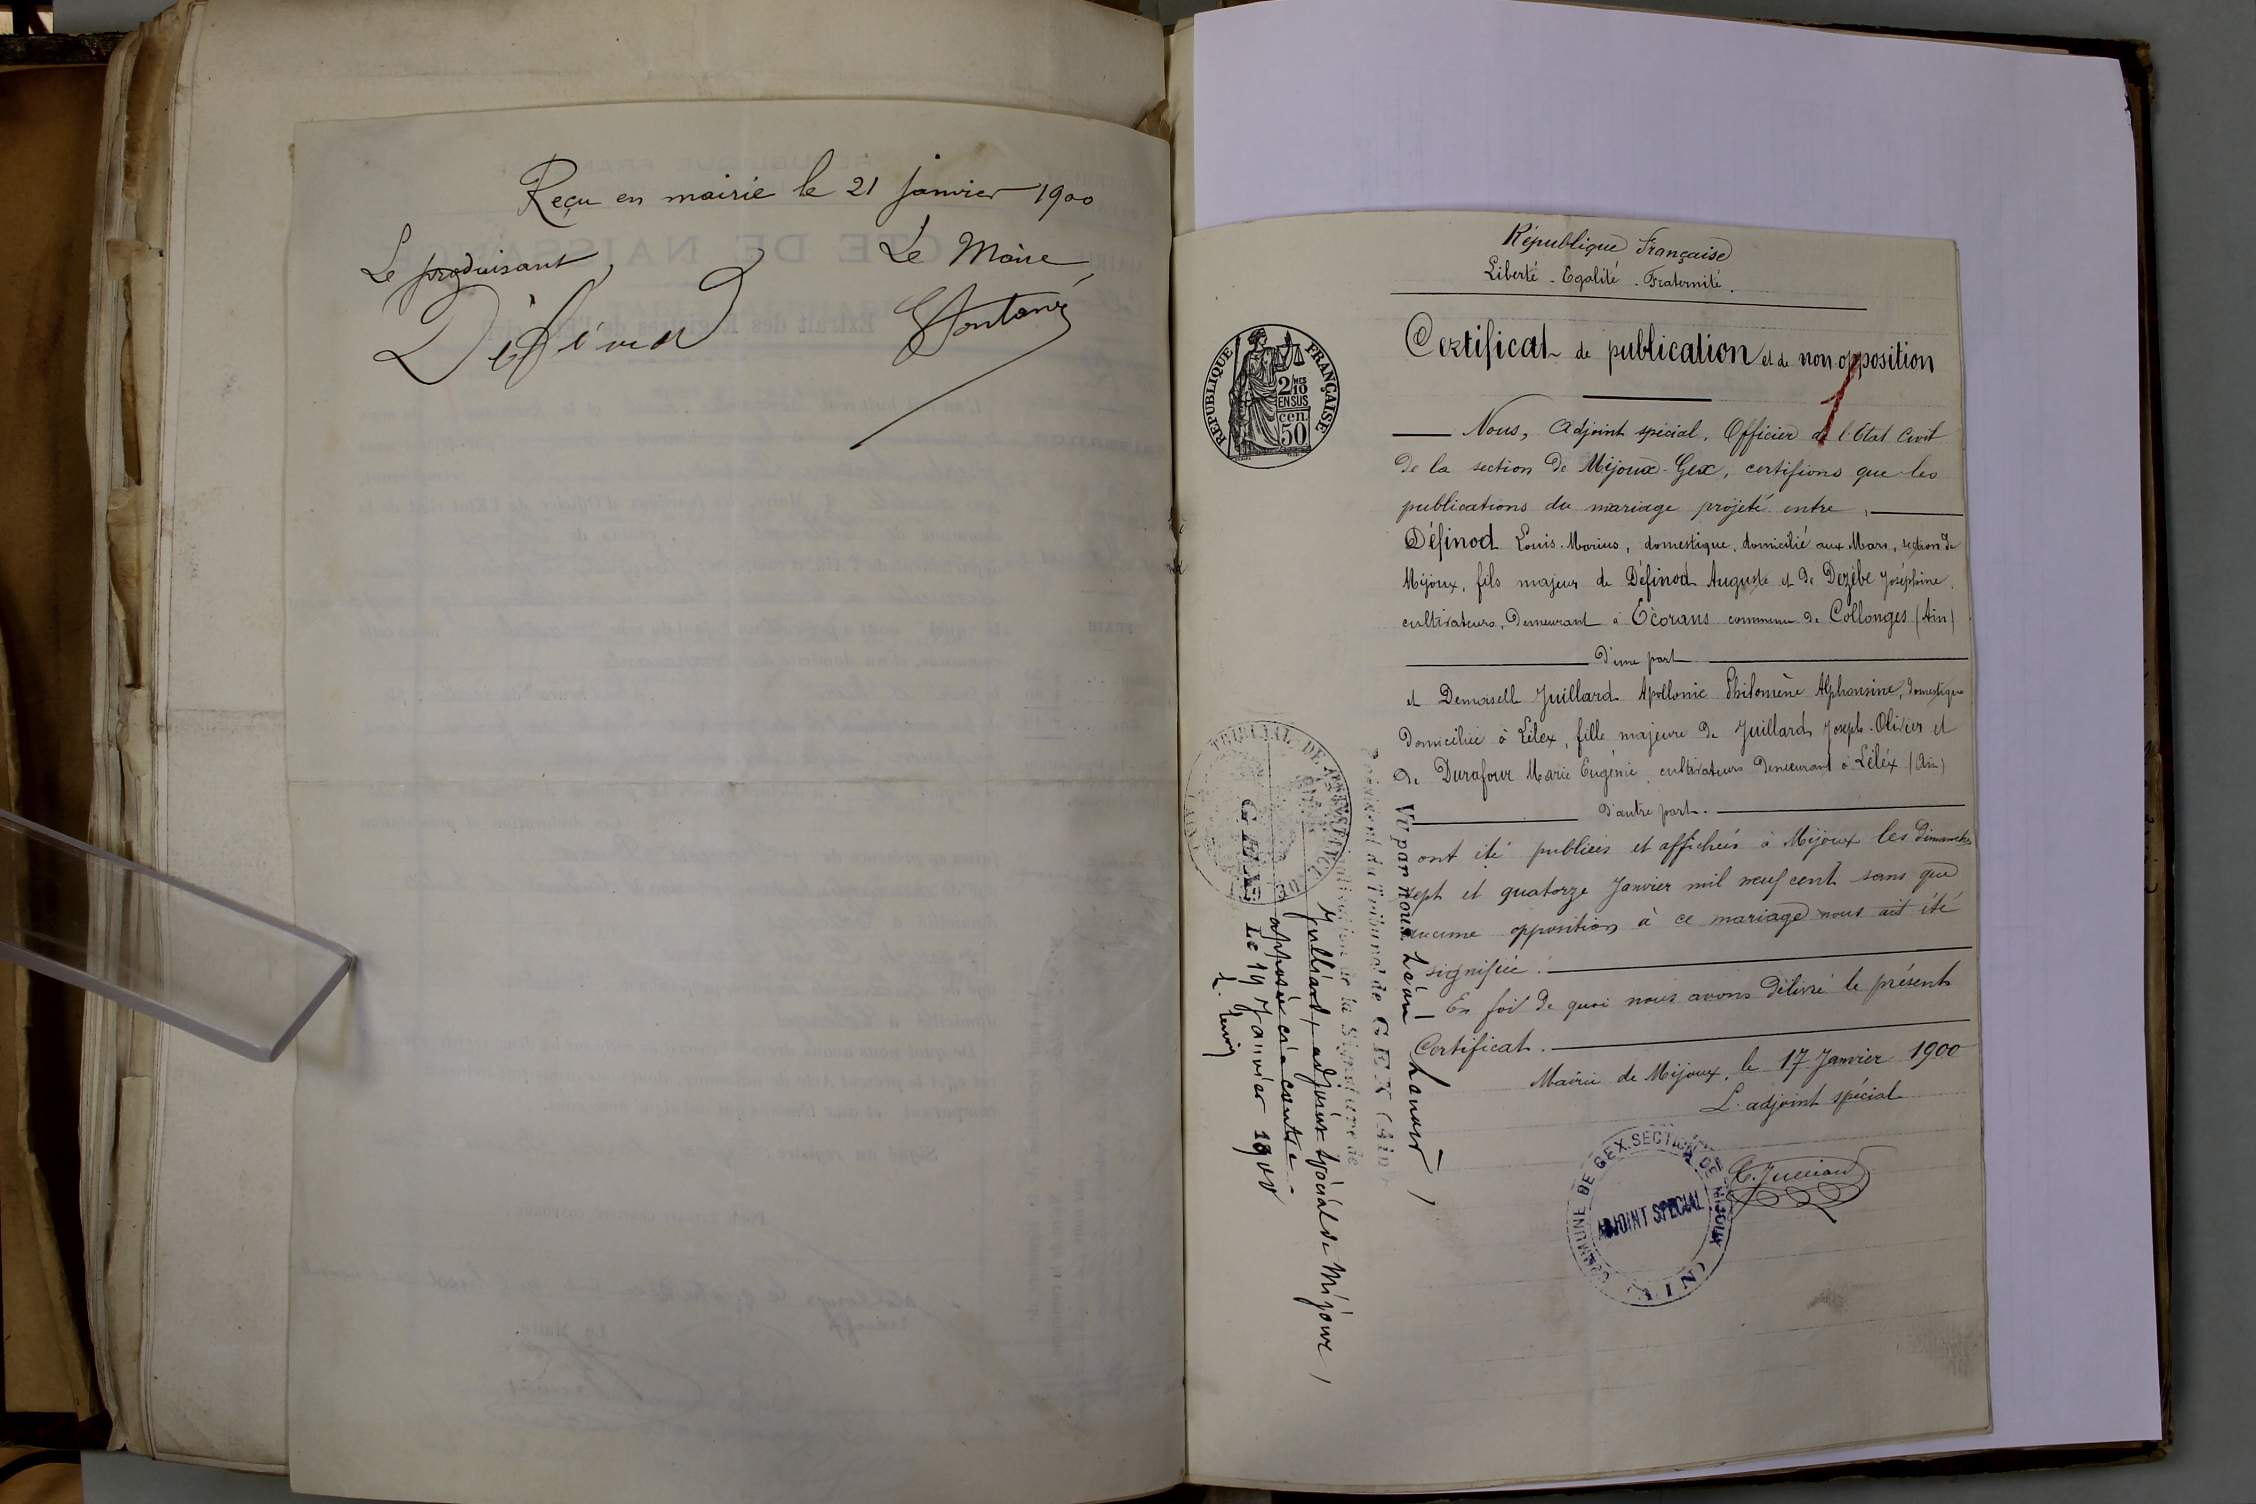 Reçu en mairie le 21 janvier 1900
Le produisant,
Le Maire,
Défинod
République Française
Liberté - Egalité - Fraternité.
REPUBLIQUE FRANÇAISE
2/10MES
EN SUS
50 cen.
Certificat de publication et de non opposition
1
Nous, Adjoint spécial, Officier de l'Etat Civil
de la section de Mijoux-Gex, certifions que les
publications du mariage projeté entre,
Définod Louis-Marius, domestique, domicilié aux Mars, section de
Mijoux, fils majeur de Définod Auguste et de Dezèbe Joséphine,
cultivateurs, demeurant à Ecorans commune de Collonges (Ain)
d'une part
et Demoiselle Juillard Apollonie Philomène Alphonsine, domestique
domiciliée à Lélex, fille majeure de Juillard Joseph-Olivier et
de Durafour Marie Eugénie, cultivateurs demeurant à Léléx (Ain)
d'autre part.
ont été publiées et affichées à Mijoux les dimanches
sept et quatorze Janvier mil neuf cent sans que
aucune opposition à ce mariage nous ait été
signifiée.
En foi de quoi nous avons délivré le présent
Certificat.
Mairie de Mijoux, le 17 Janvier 1900
L'adjoint spécial
C. Julliard
COMMUNE DE GEX. SECTION DE MIJOUX
ADJOINT SPECIAL
(AIN)
Vu par nous, Léon
Président du Tribunal de GEX (Ain)
légalisation de la Signature de
Julliard, adjoint spécial de Mijoux,
apposée ci-contre.
GEX, Le 19 Janvier 1900
TRIBUNAL DE